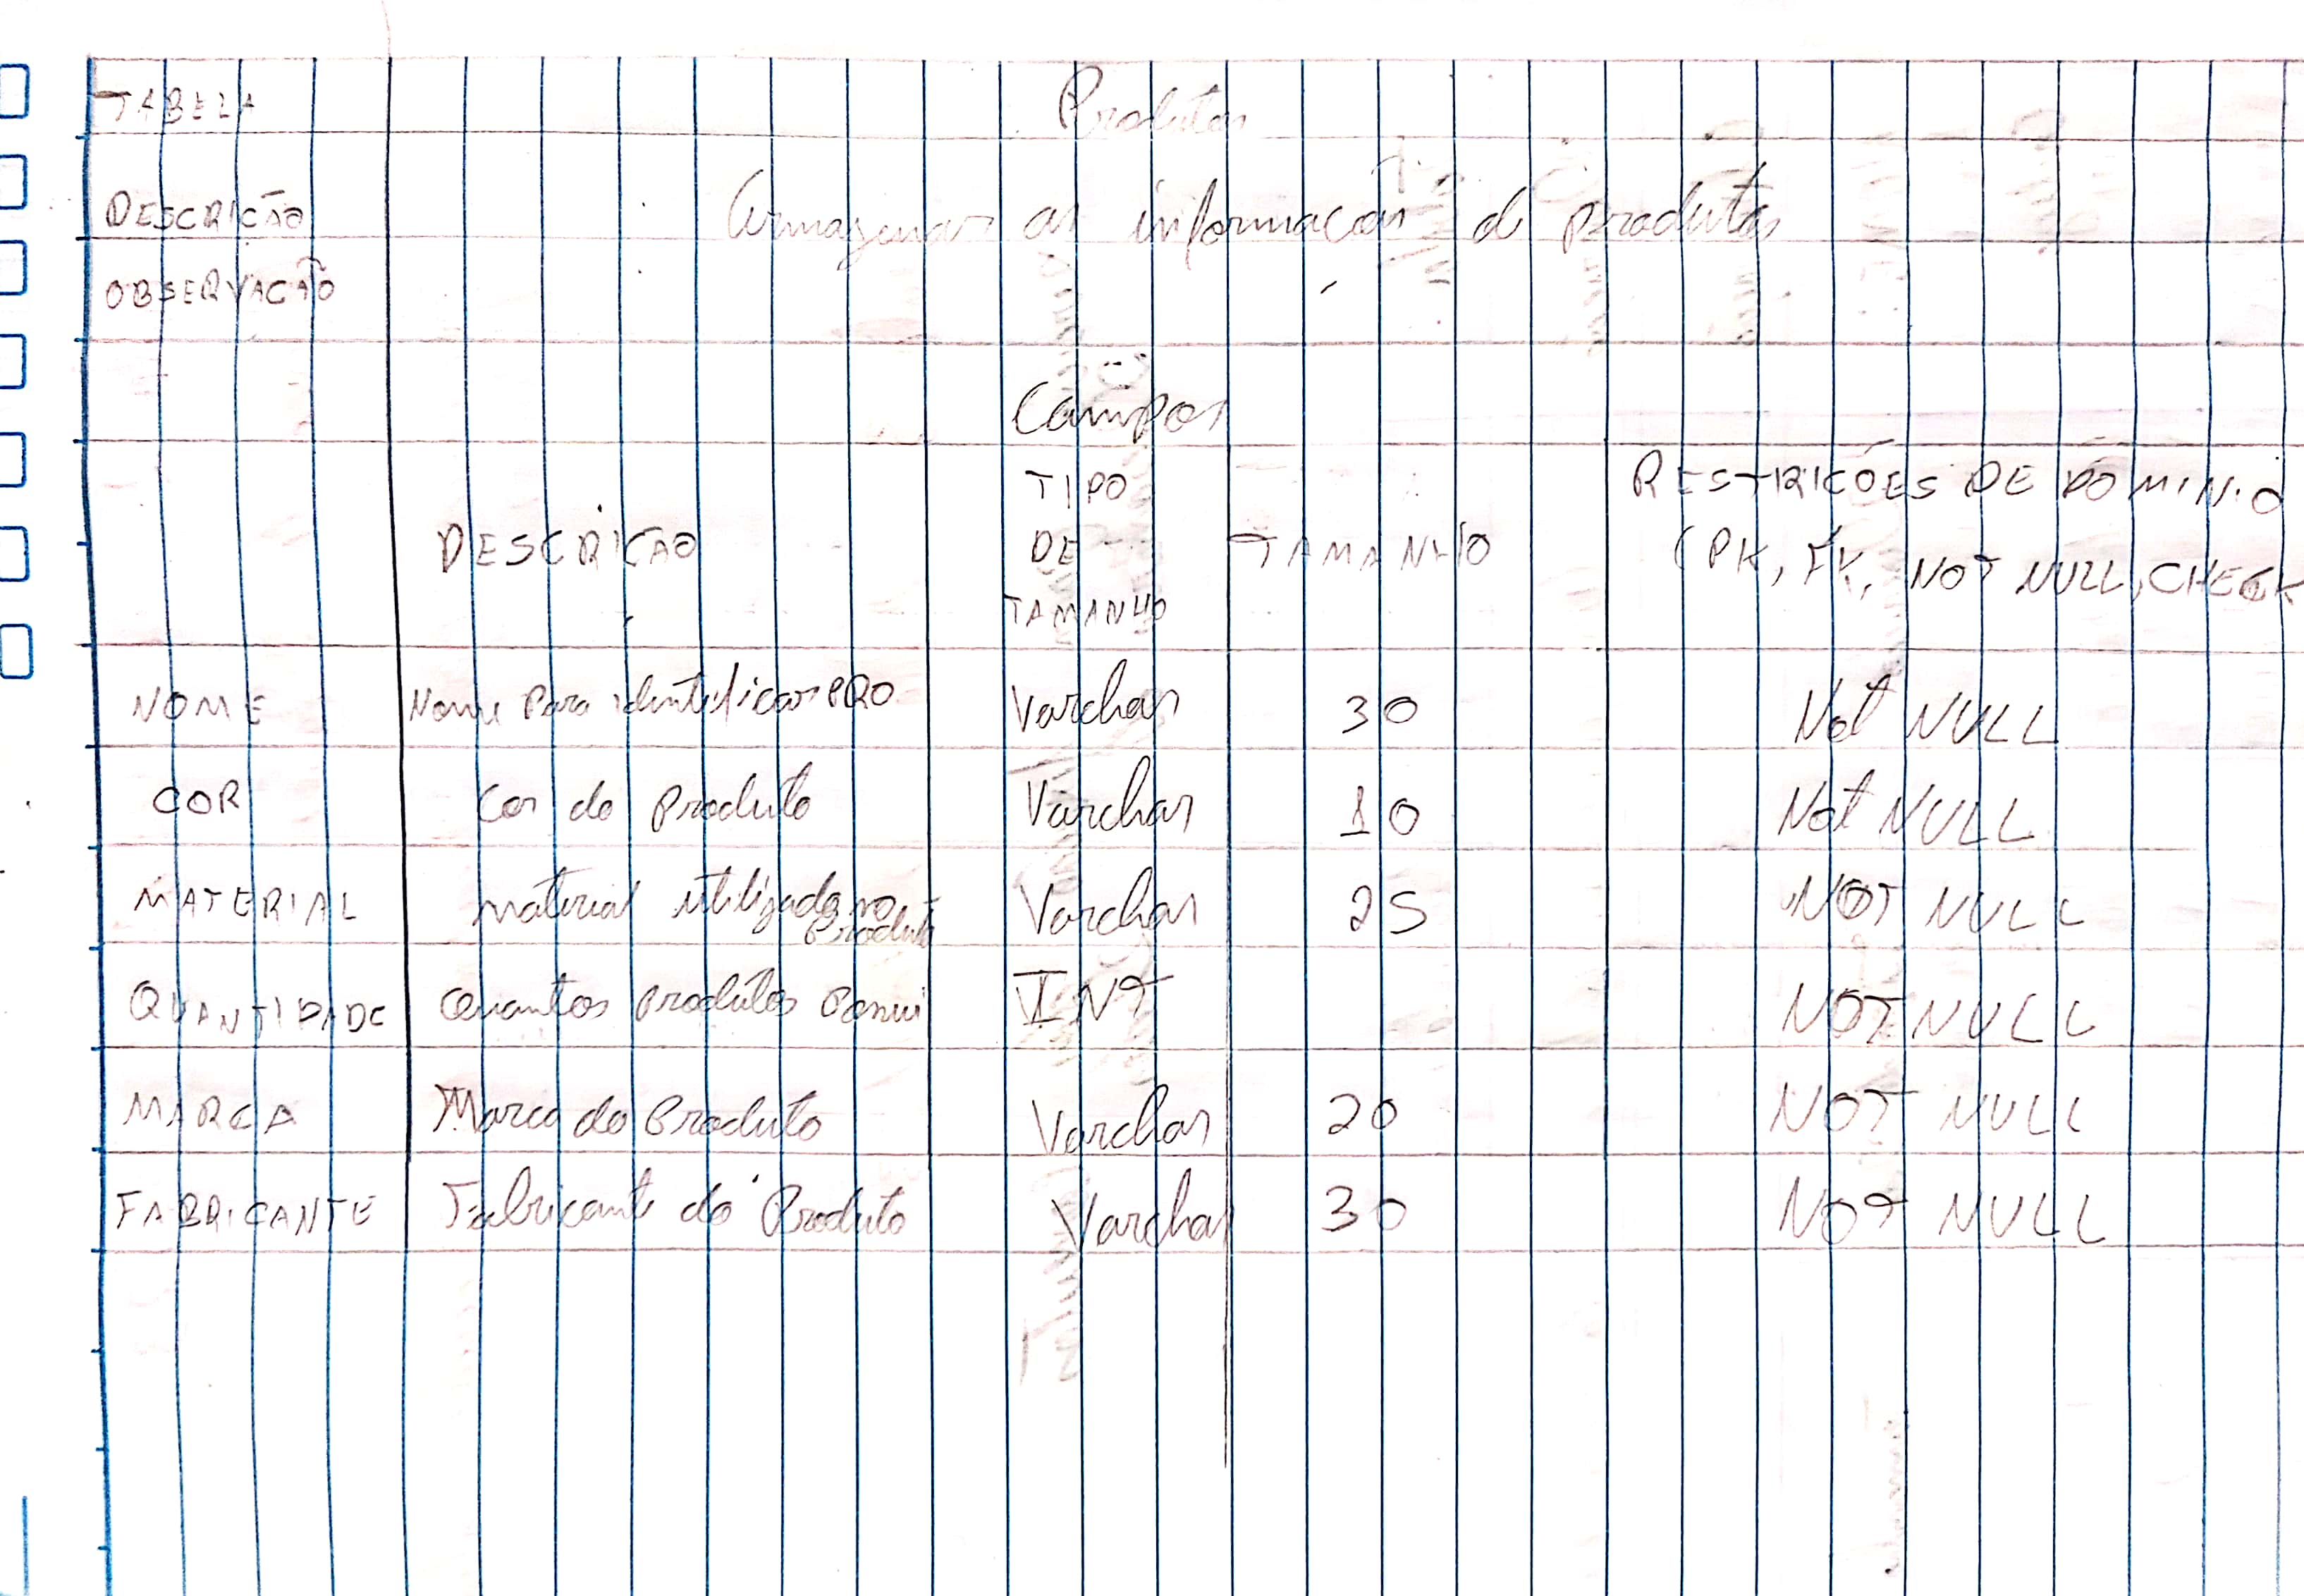 TABELA Produtos
DESCRIÇÃO Armazenar as informações de produtos
OBSERVAÇÃO
Campos
DESCRIÇÃO TIPO DE TAMANHO TAMANHO RESTRIÇÕES DE DOMINIO (PK, FK, NOT NULL, CHECK
NOME Nome para identificar PRO Varchar 30 Not NULL
COR Cor do Produto Varchar 10 Not NULL
MATERIAL material utilizado no Produto Varchar 25 NOT NULL
QUANTIDADE Quantos produtos possui INT NOT NULL
MARCA Marca do Produto Varchar 20 NOT NULL
FABRICANTE Fabricante do Produto Varchar 30 NOT NULL